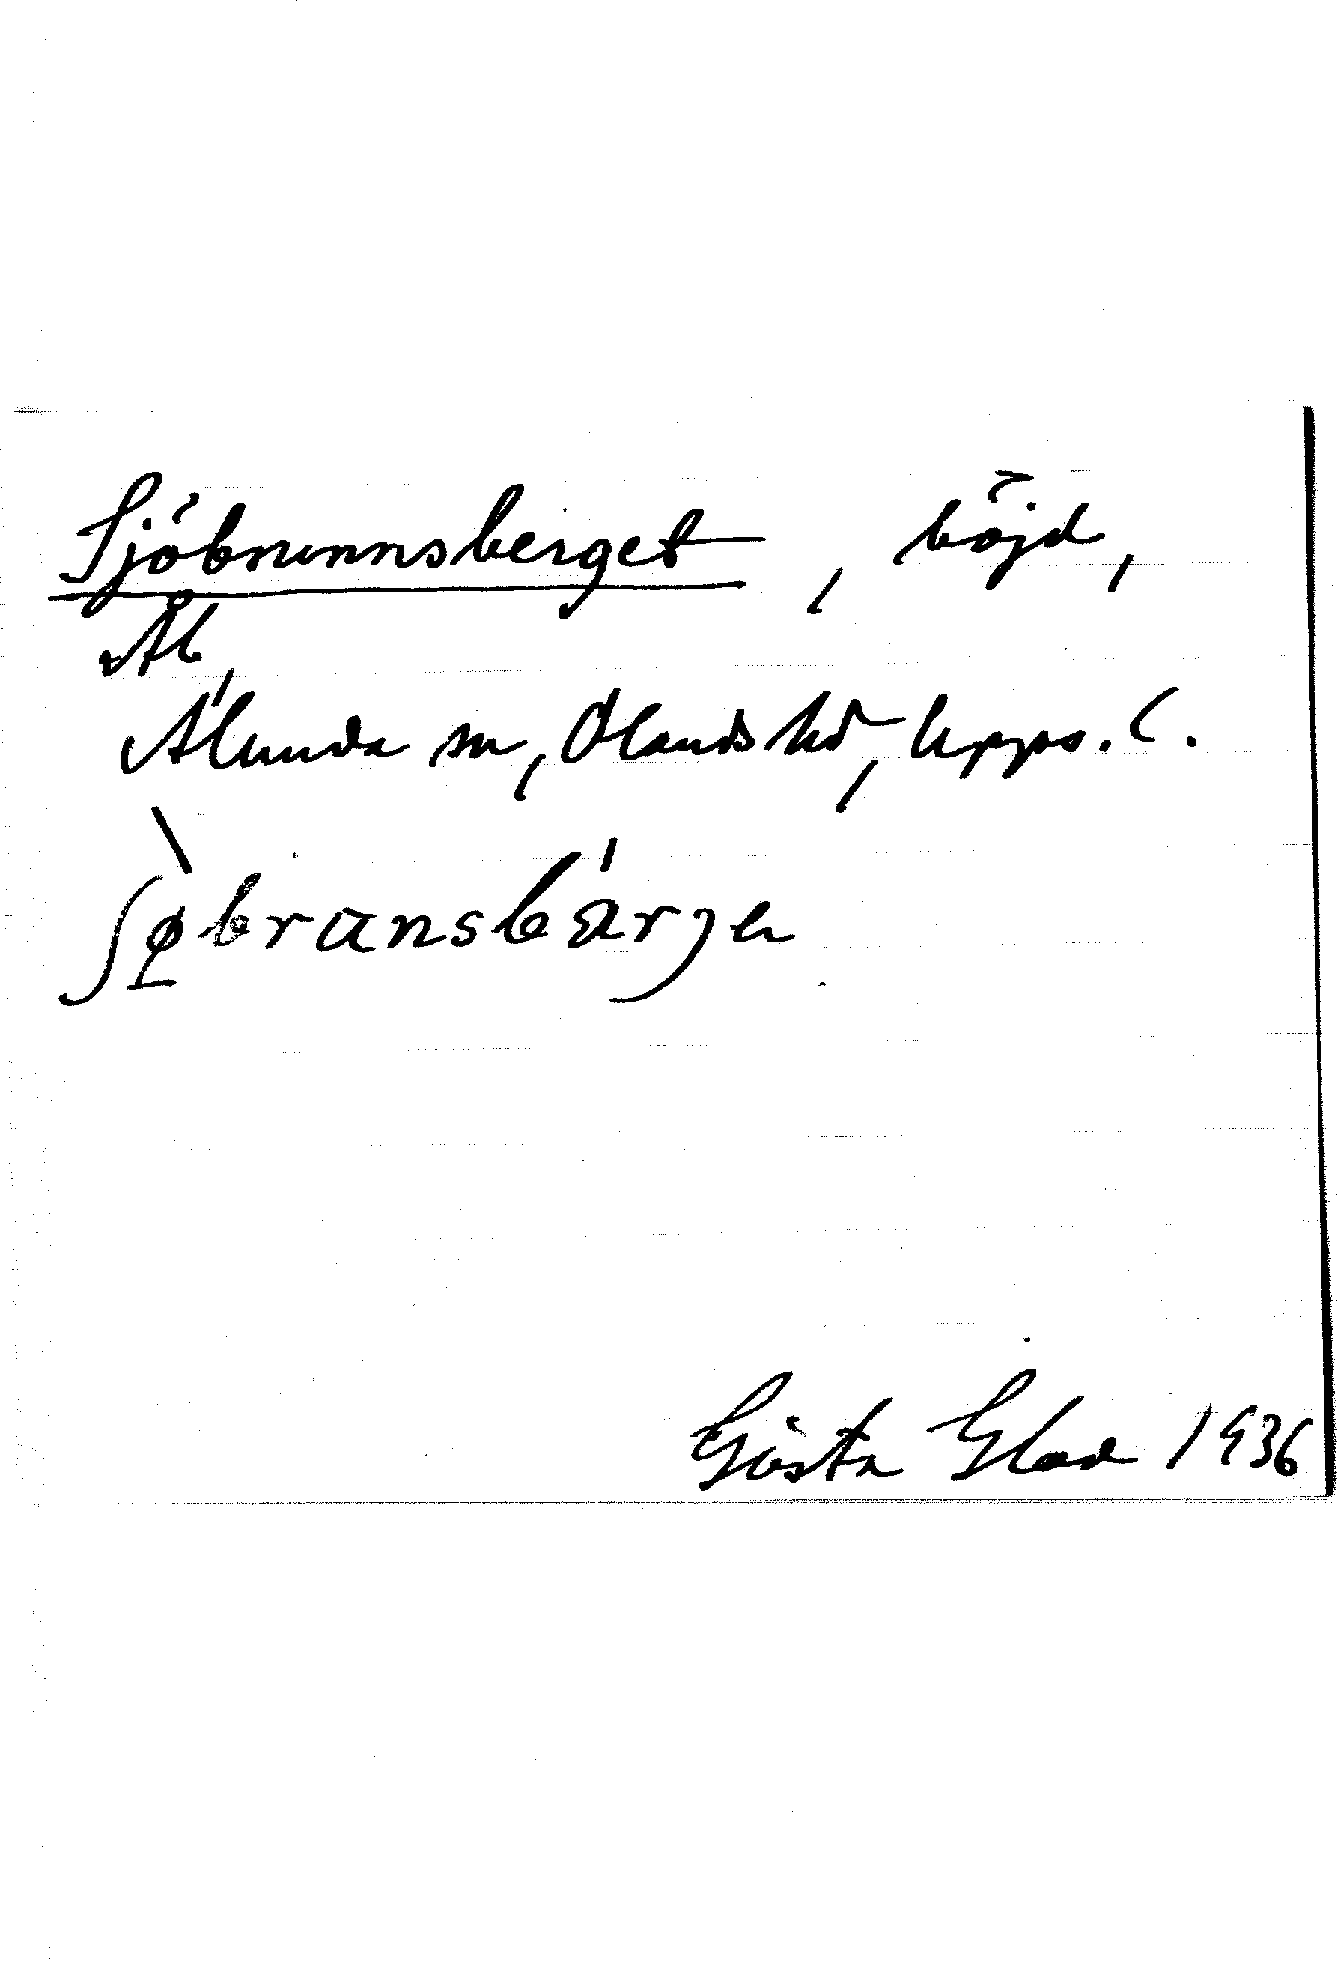 Sjöbrunnsberget, höjd,
Ål,
Alunda sn, Olands hd, Upps. l.
ʃøbransbärjer
Gösta Glad 1936